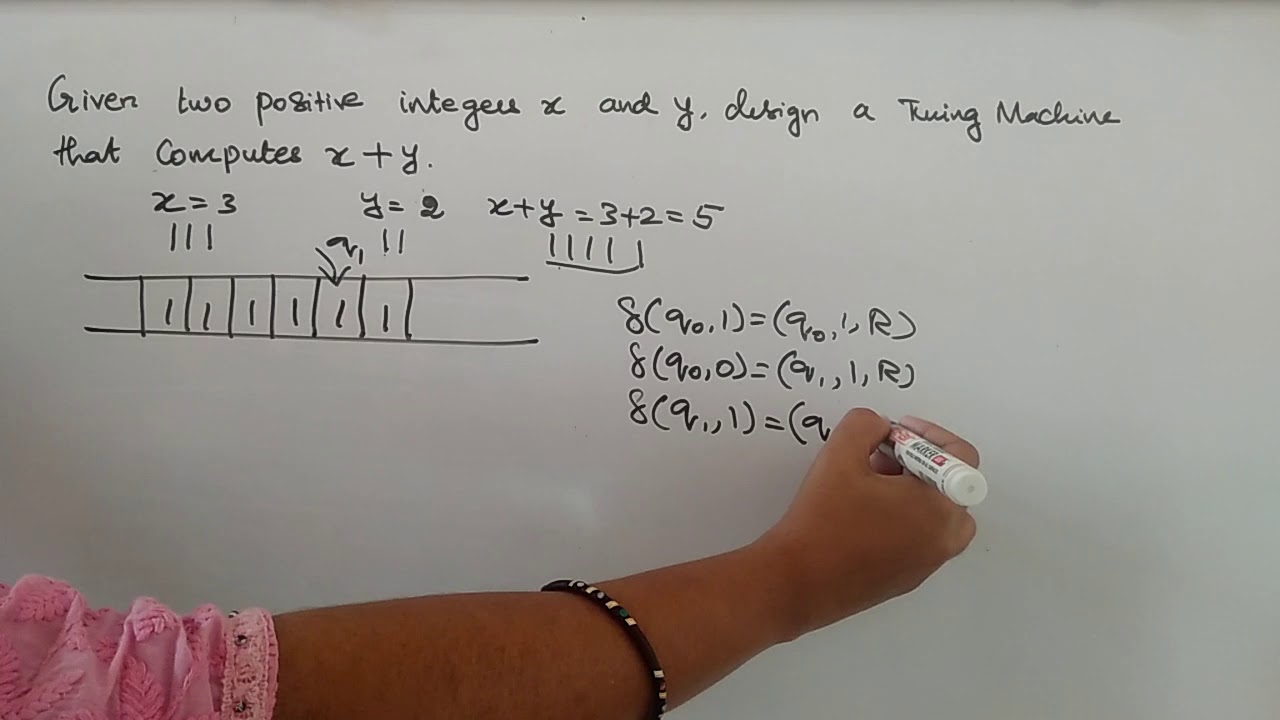 Given two positive integers x and y, design a Turing Machine
that Computes x+y.
x = 3 y = 2 x+y = 3+2 = 5
||| || |||||
q₁
1 1 1 1 1 1
δ(q₀,1)=(q₀,1,R)
δ(q₀,0)=(q₁,1,R)
δ(q₁,1)=(q
MARKER